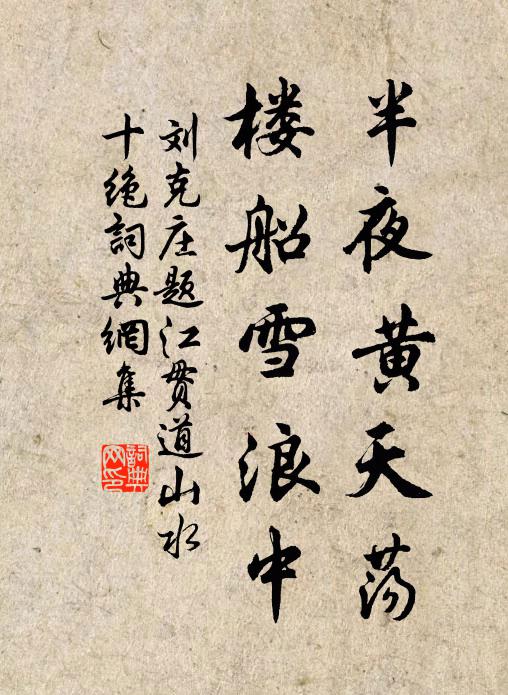 半夜黄天荡
楼船雪浪中
刘克庄题江贯道山水
十绝詞典網集
詞典网印